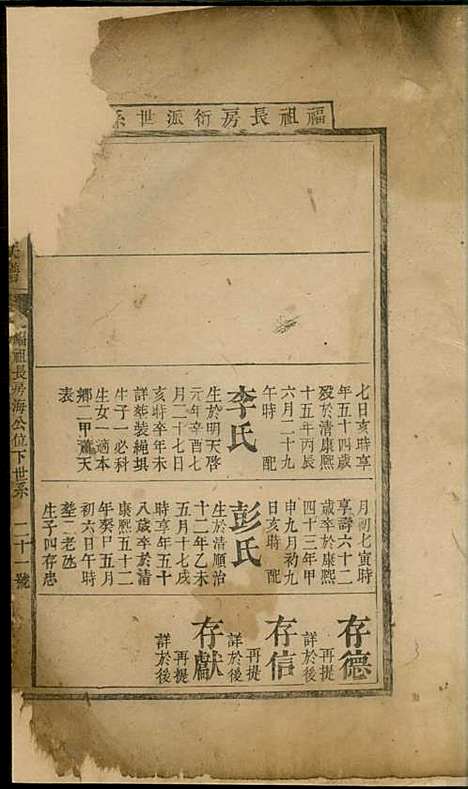 福祖長房衍派世系
七日亥時享
年五十四歲
歿於清康熙
十五年丙辰
六月二十九
午時　配
李氏
生於明天啓
元年辛酉七
月二十七日
亥時辛年未
詳葬裝繩垻
牛子一必科
生女一適本
鄉二甲蕭天
表
月初七寅時
享壽六十二
歲卒於康熙
四十三年甲
申九月初九
日亥時　配
彭氏
生於清順治
十二年乙未
五月十七戌
時享年五十
八歲卒於清
康熙五十二
年癸巳五月
初六日午時
塟二老氹
生子四存忠
存德
再提
詳於後
存信
再提
詳於後
存獻
再提
詳於後
福祖長房海公位下世系
二十一號